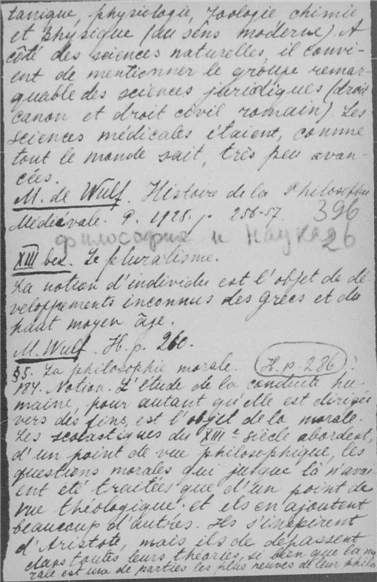 tanique, physiologie, zoologie, chimie
et physique (du sens moderne). A
côté des sciences naturelles, il convi-
ent de mentionner le groupe remar-
quable des sciences juridiques (droit
canon et droit civil romain). Les
sciences médicales étaient, comme
tout le monde sait, très peu avan-
cées.
M. de Wulf. Histoire de la Philosophie
Médiévale. P. 1925. p. 256-57.
396
философия и наука
26
XIII век. Le pluralisme.
La notion d'individu est l'objet de dé-
veloppements inconnus des grecs et du
haut moyen âge.
M. Wulf. H. p. 260.
§5. La philosophie morale. (H. p. 286)
184. Notion. L'étude de la conduite hu-
maine, pour autant qu'elle est dirigée
vers des fins, est l'objet de la morale.
Les scolastiques du XIIIe siècle abordent,
d'un point de vue philosophique, les
questions morales qui jusque là n'avai-
ent été traitées que d'un point de
vue théologique; et ils en ajoutent
beaucoup d'autres. Ils s'inspirent
d'Aristote, mais ils le dépassent
dans toutes leurs théories, si bien que la mo-
rale est une de parties les plus neuves de leur philo